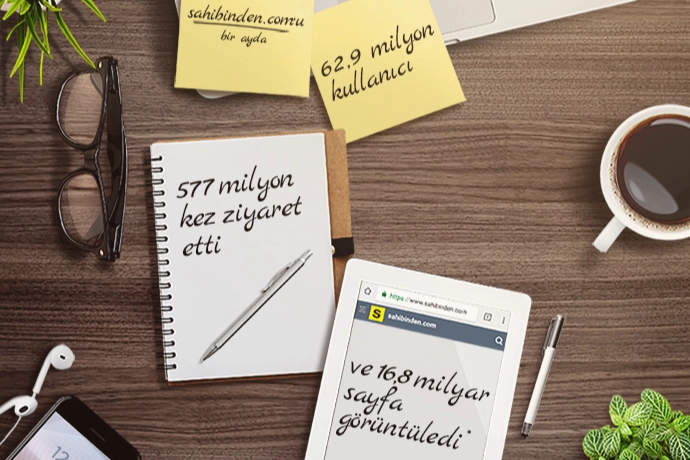 sahibinden.com'u
bir ayda
62,9 milyon
kullanıcı
577 milyon
kez ziyaret
etti
https://www.sahibinden.com
S sahibinden.com
ve 16,8 milyar
sayfa
görüntüledi*
12